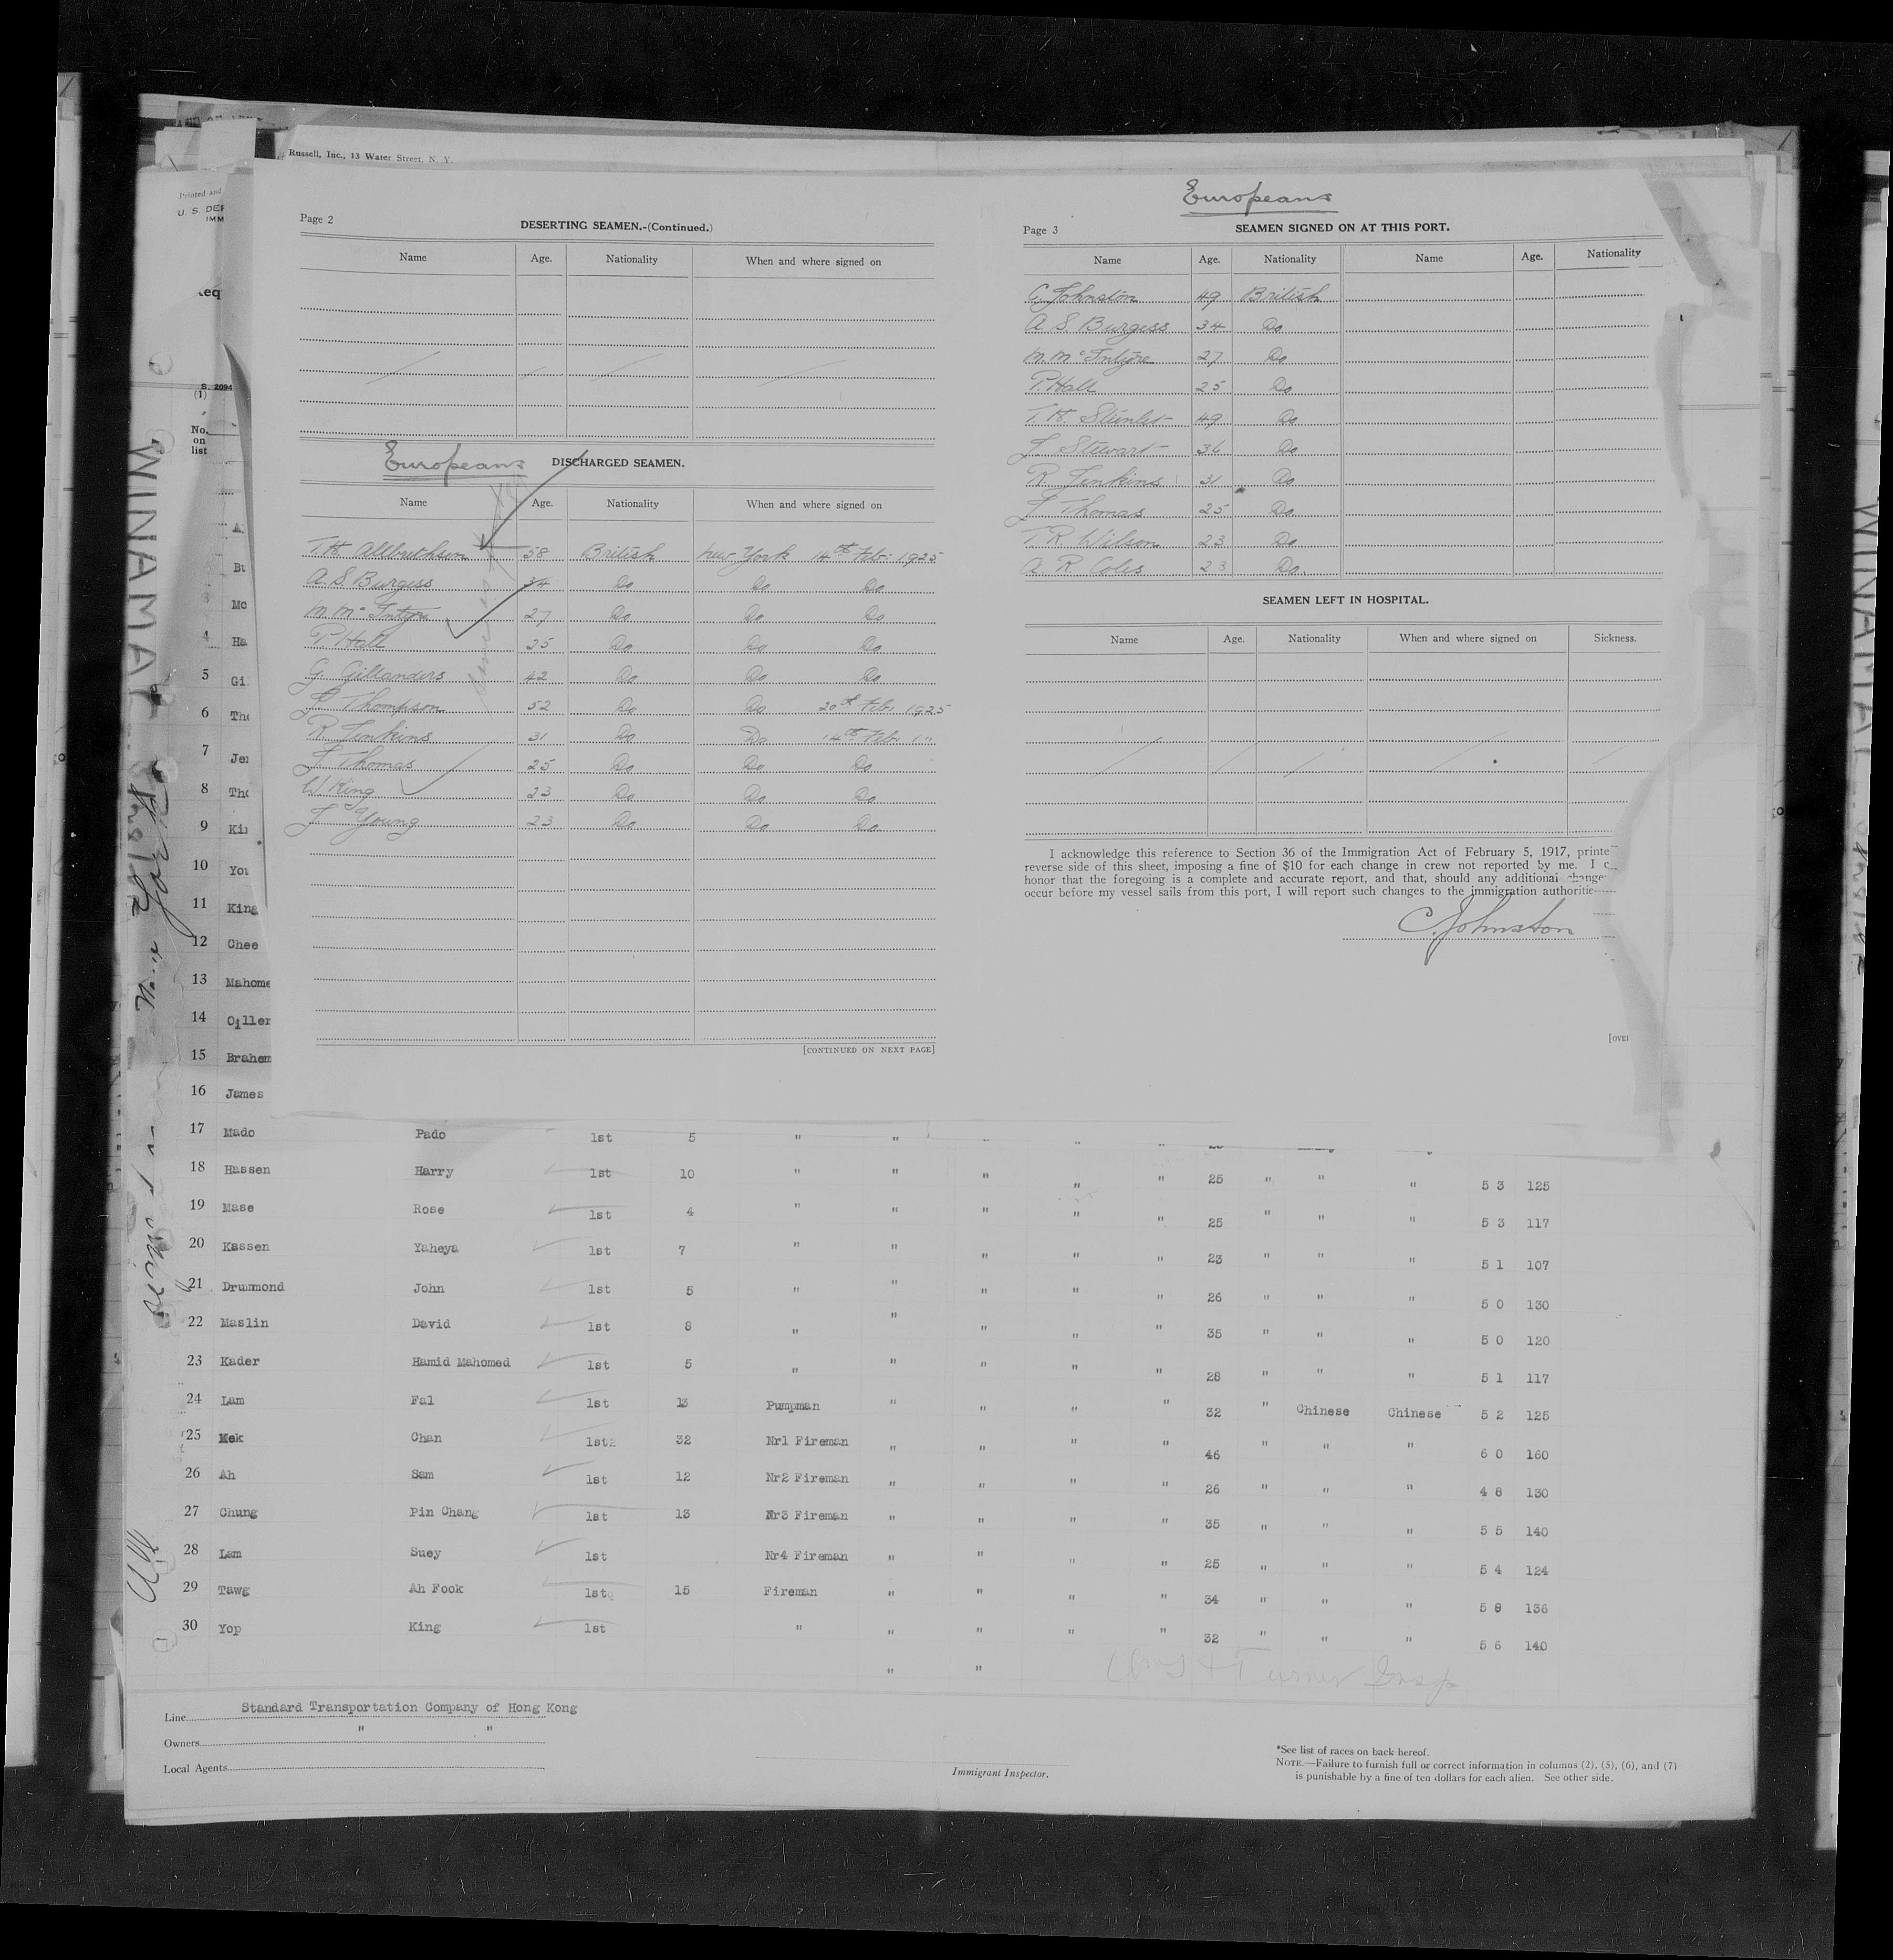 Russell, Inc., 13 Water Street, N. Y.
Printed and
U. S. DEP
IMM
S. 2094
(1)
No.
on
list
WINAMAC
New York
Page 2
DESERTING SEAMEN.-(Continued.)
Name Age. Nationality When and where signed on
Europeans DISCHARGED SEAMEN.
Name Age. Nationality When and where signed on
T.H. Allbuthsen 58 British New York 14th Feb: 1925
A. S. Burgess 34 Do Do Do
M. McIntyre 27 Do Do Do
P. Hall 25 Do Do Do
G. Gillanders 42 Do Do Do
J. Thompson 52 Do Do 20th Feb: 1925
R. Jenkins 31 Do Do 14th Feb: "
J. Thomas 25 Do Do Do
W King 23 Do Do Do
J. Young 23 Do Do Do
[CONTINUED ON NEXT PAGE]
Europeans
Page 3
SEAMEN SIGNED ON AT THIS PORT.
Name Age. Nationality Name Age. Nationality
C. Johnston 49 British
A. S. Burgess 34 Do
M. McIntyre 27 Do
P. Hall 25 Do
T. H. 49 Do
J. Stewart 36 Do
R. Jenkins 31 Do
J. Thomas 25 Do
T. R. Wilson 23 Do
A. R. Coles 23 Do.
SEAMEN LEFT IN HOSPITAL.
Name Age. Nationality When and where signed on Sickness.
I acknowledge this reference to Section 36 of the Immigration Act of February 5, 1917, printe
reverse side of this sheet, imposing a fine of $10 for each change in crew not reported by me. I c
honor that the foregoing is a complete and accurate report, and that, should any additional change
occur before my vessel sails from this port, I will report such changes to the immigration authoritie
C. Johnston
[OVE
3 Mc
4 Ha
5 Gi
6 Tho
7 Jen
8 Tho
9 Kin
10 You
11 King
12 Chee
13 Mahome
14 Oiller
15 Brahem
16 James
17 Mado Pado 1st 5 " " " " "
18 Hassen Harry 1st 10 " " " " " 25 " " " 5 3 125
19 Mase Rose 1st 4 " " " " " 25 " " " 5 3 117
20 Kassen Yaheya 1st 7 " " " " " 23 " " " 5 1 107
21 Drummond John 1st 5 " " " " " 26 " " " 5 0 130
22 Maslin David 1st 8 " " " " " 35 " " " 5 0 120
23 Kader Hamid Mahomed 1st 5 " " " " " 28 " " " 5 1 117
24 Lam Fal 1st 13 Pumpman " " " " 32 " Chinese Chinese 5 2 125
25 Mek Chan 1st 32 Nr1 Fireman " " " " 46 " " " 6 0 160
26 Ah Sam 1st 12 Nr2 Fireman " " " " 26 " " " 4 8 130
27 Chung Pin Chang 1st 13 Nr3 Fireman " " " " 35 " " " 5 5 140
28 Lam Suey 1st Nr4 Fireman " " " " 25 " " " 5 4 124
29 Tawg Ah Fook 1st 15 Fireman " " " " 34 " " " 5 8 136
30 Yop King 1st " " " " " 32 " " " 5 6 140
" "
Turner Insp
Line Standard Transportation Company of Hong Kong
Owners " "
Local Agents
Immigrant Inspector.
*See list of races on back hereof.
NOTE.—Failure to furnish full or correct information in columns (2), (5), (6), and (7)
is punishable by a fine of ten dollars for each alien. See other side.